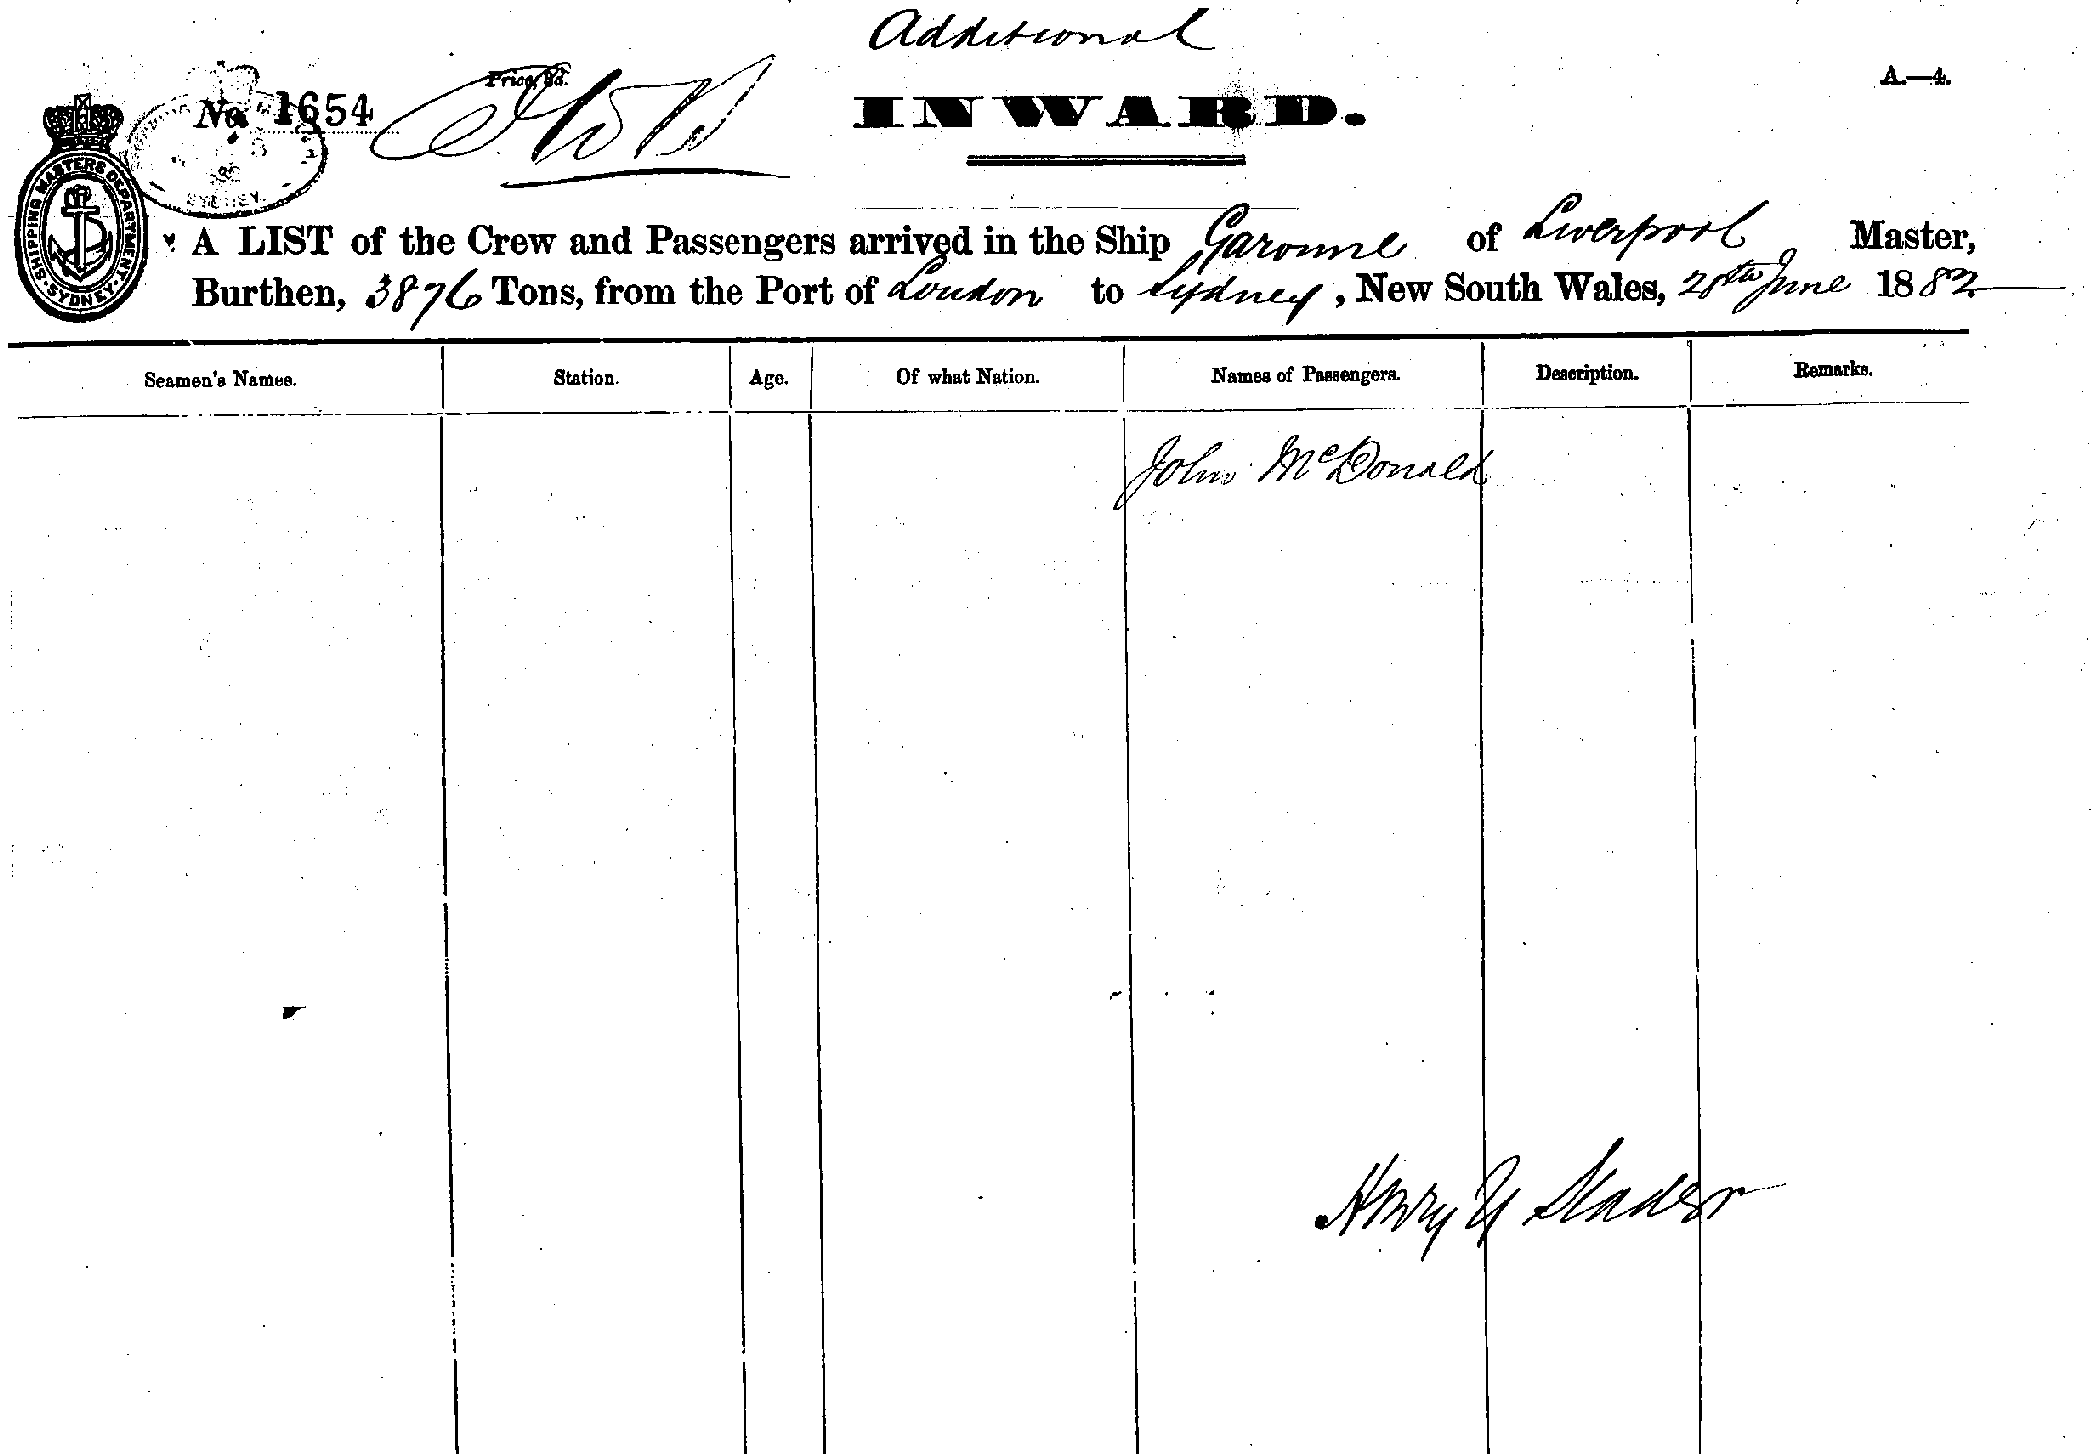 Additional
A.—4.
Price, 3d.
No. 1654
INWARD.
SHIPPING MASTERS DEPARTMENT
SYDNEY
SYDNEY
A LIST of the Crew and Passengers arrived in the Ship Garonne of Liverpool Master,
Burthen, 3876 Tons, from the Port of London to Sydney, New South Wales, 28th June 1882
Seamen's Names. Station. Age. Of what Nation. Names of Passengers. Description. Remarks.
John McDonald
Henry